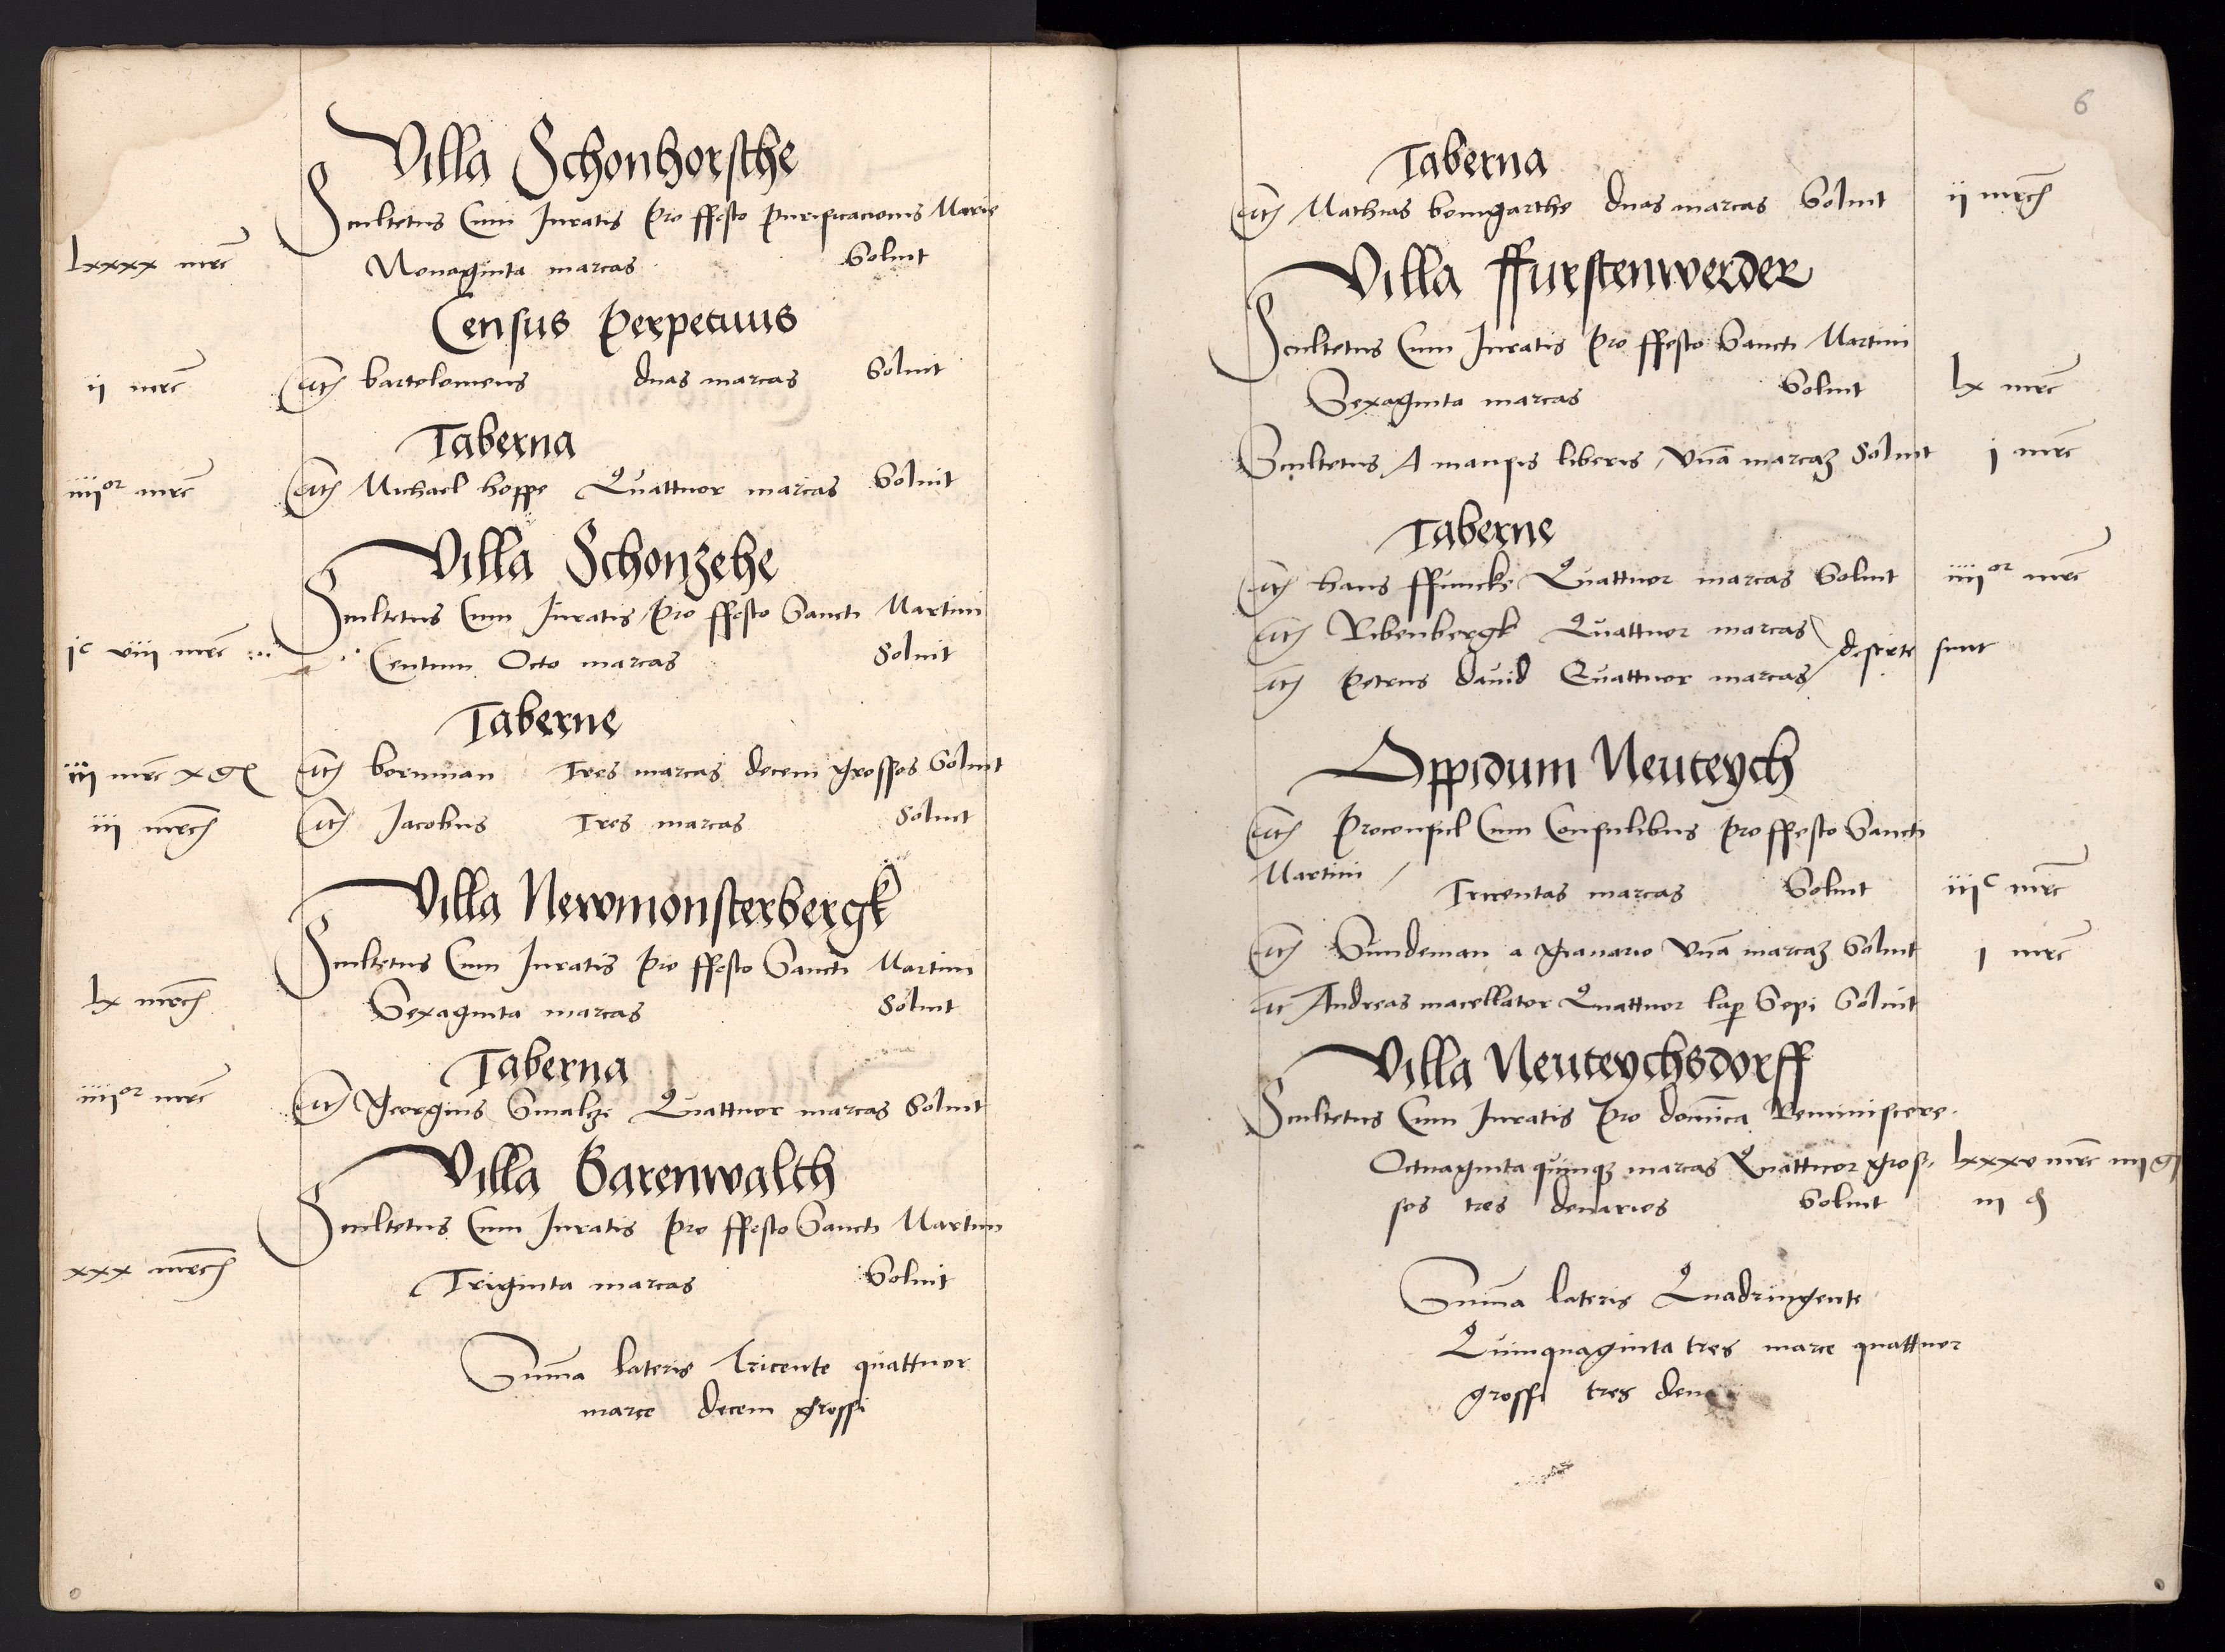 Villa Schonhorsthe
Scultetus Cum Juratis Pro ffesto purificacionis Marie
lxxxx mrc Nonaginta marcas Soluit
Census Perpetuus
ii mrc Itē bartolomeus duas marcas Soluit
Taberna
iiiior mrc Itē Michael hoppe Quattuor marcas Soluit
Villa Schonzehe
Scultetus Cum Juratis Pro ffesto Sancti Martini
jc viii mrc Centum Octo marcas Soluit
Taberne
iii mrc x g Itē bornman Tres marcas decem grossos Soluit
iii mrc Itē Jacobus Tres marcas Soluit
Villa Newmonsterbergk
Scultetus Cum Juratis Pro ffesto Sancti Martini
lx mrc Sexaginta marcas Soluit
Taberna
iiiior mrc Itē Georgius Smaltze Quattuor marcas Soluit
Villa Barenwalth
Scultetus Cum Juratis Pro ffesto Sancti Martini
xxx mrc Triginta marcas Soluit
Suma lateris Tricente quattuor
marce decem grossi
6
Taberna
Itē Mathias bomgarthe duas marcas Soluit ii mrc
Villa ffurstenwerder
Scultetus Cum Juratis Pro ffesto Sancti Martini
Sexaginta marcas Soluit lx mrc
Scultetus A mansis liberis Vnā marcaȝ Soluit j mrc
Taberne
Itē hans ffuncke Quattuor marcas Soluit iiiior mrc
Itē Ribenbergk Quattuor marcas
deserte sunt
Itē Petrus dauid Quattuor marcas
Oppidum Neuteych
Itē Proconsul Cum Consulibus Pro ffesto Sancti
Martini / Tricentas marcas Soluit iiic mrc
Itē Sundeman a granario Vnā marcaȝ Soluit j mrc
Itē Andreas macellator Quattuor lap Sepi Soluit
Villa Neuteychsdorff
Scultetus Cum Juratis Pro domīca Reminiscere
Octuaginta quinqȝ marcas Quattuor gros lxxxv mrc iiij g
sos tres denarios Soluit iij d
Suma lateris Quadringente
Quinquaginta tres marce quattuor
grossi tres den